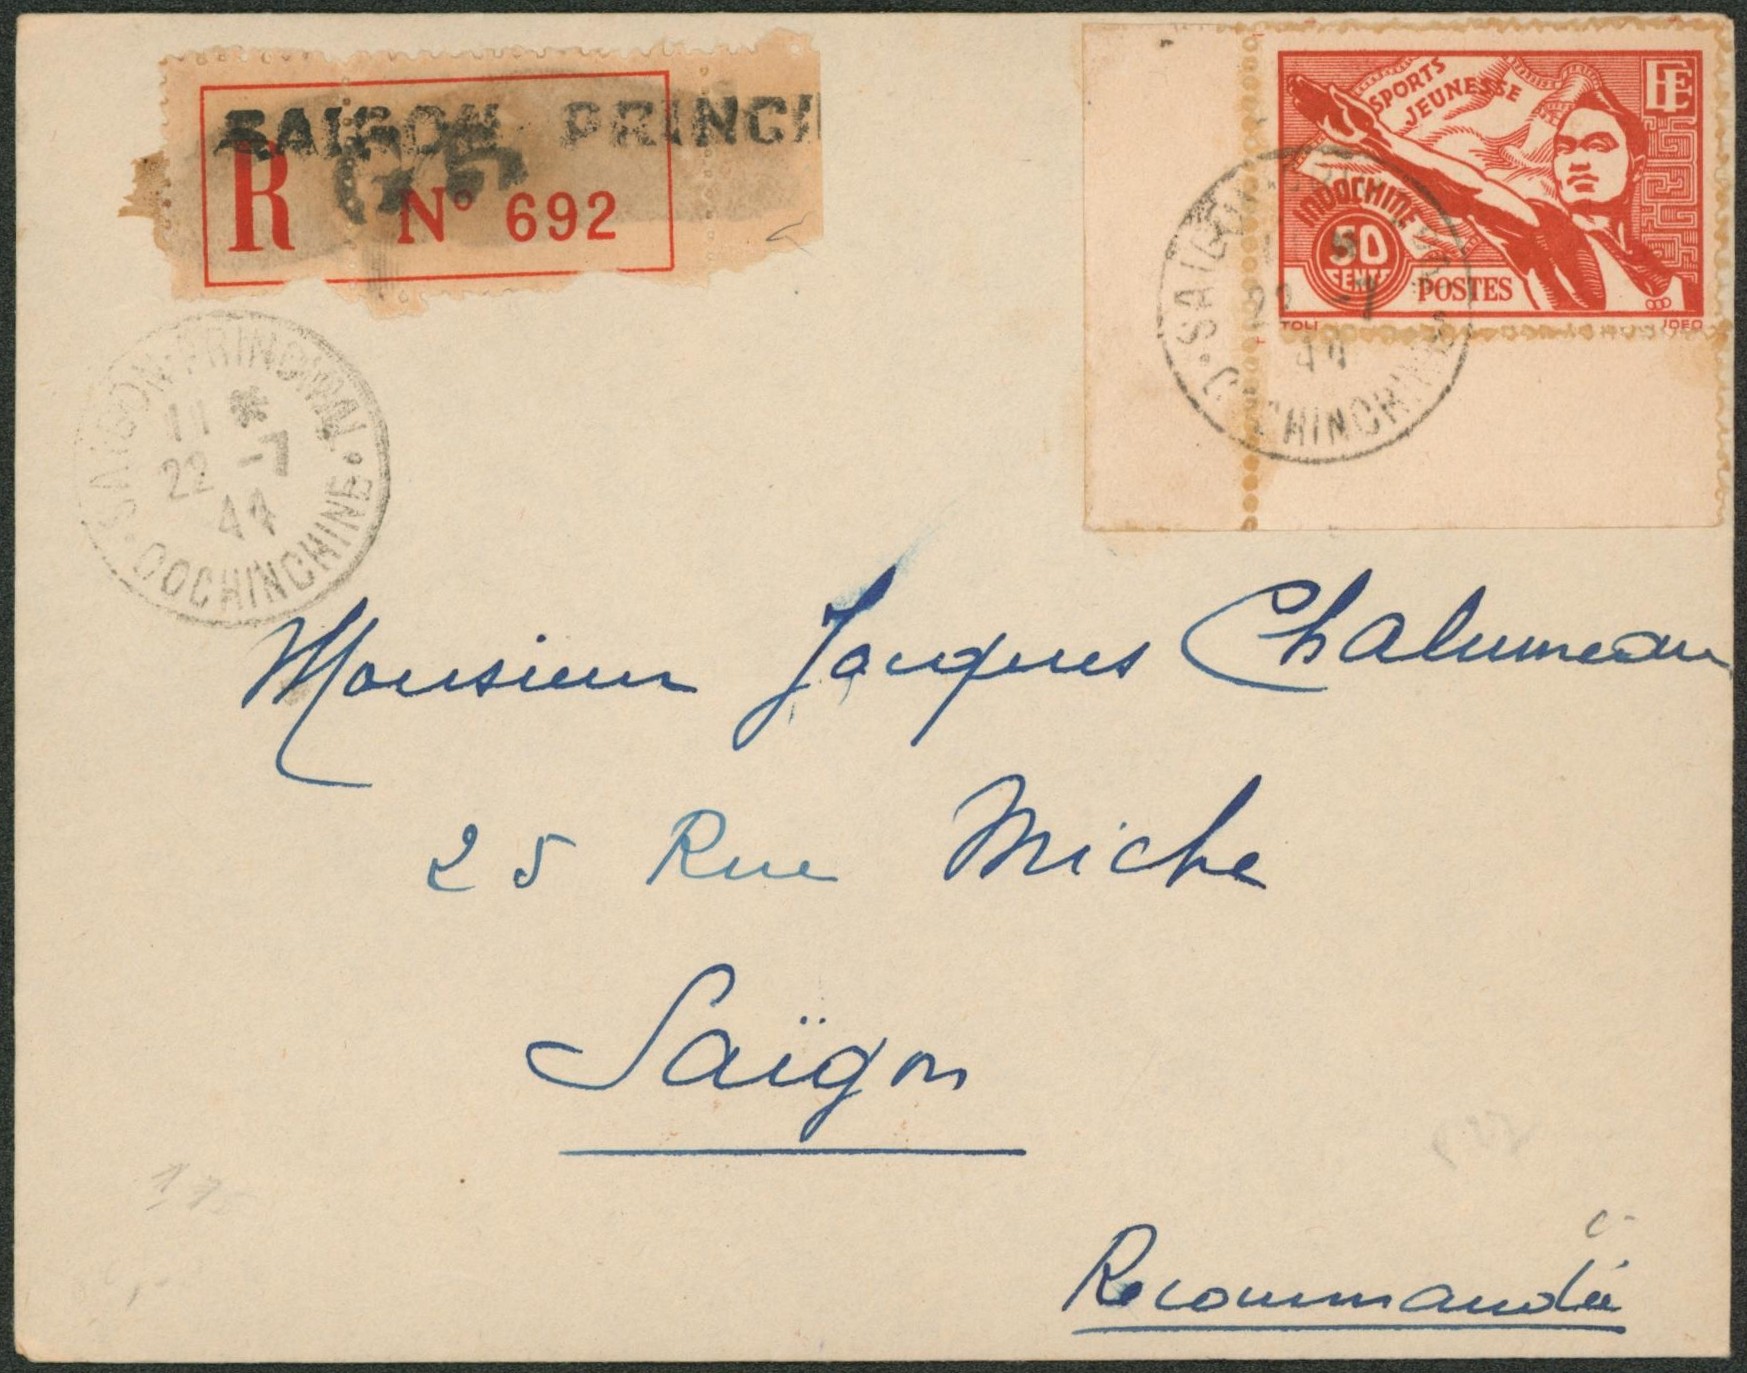 SAIGON PRINCI
R N° 692
SPORTS
JEUNESSE
EF
INDOCHINE
50
CENTS
POSTES
TOLI IDEO
SAIGON-PRINCIPAL
11 *
22 -7
44
COCHINCHINE
SAIGON
22 -7
44
COCHINCHINE
Monsieur Jacques Chalumeau
25 Rue Miche
Saïgon
Recommandée